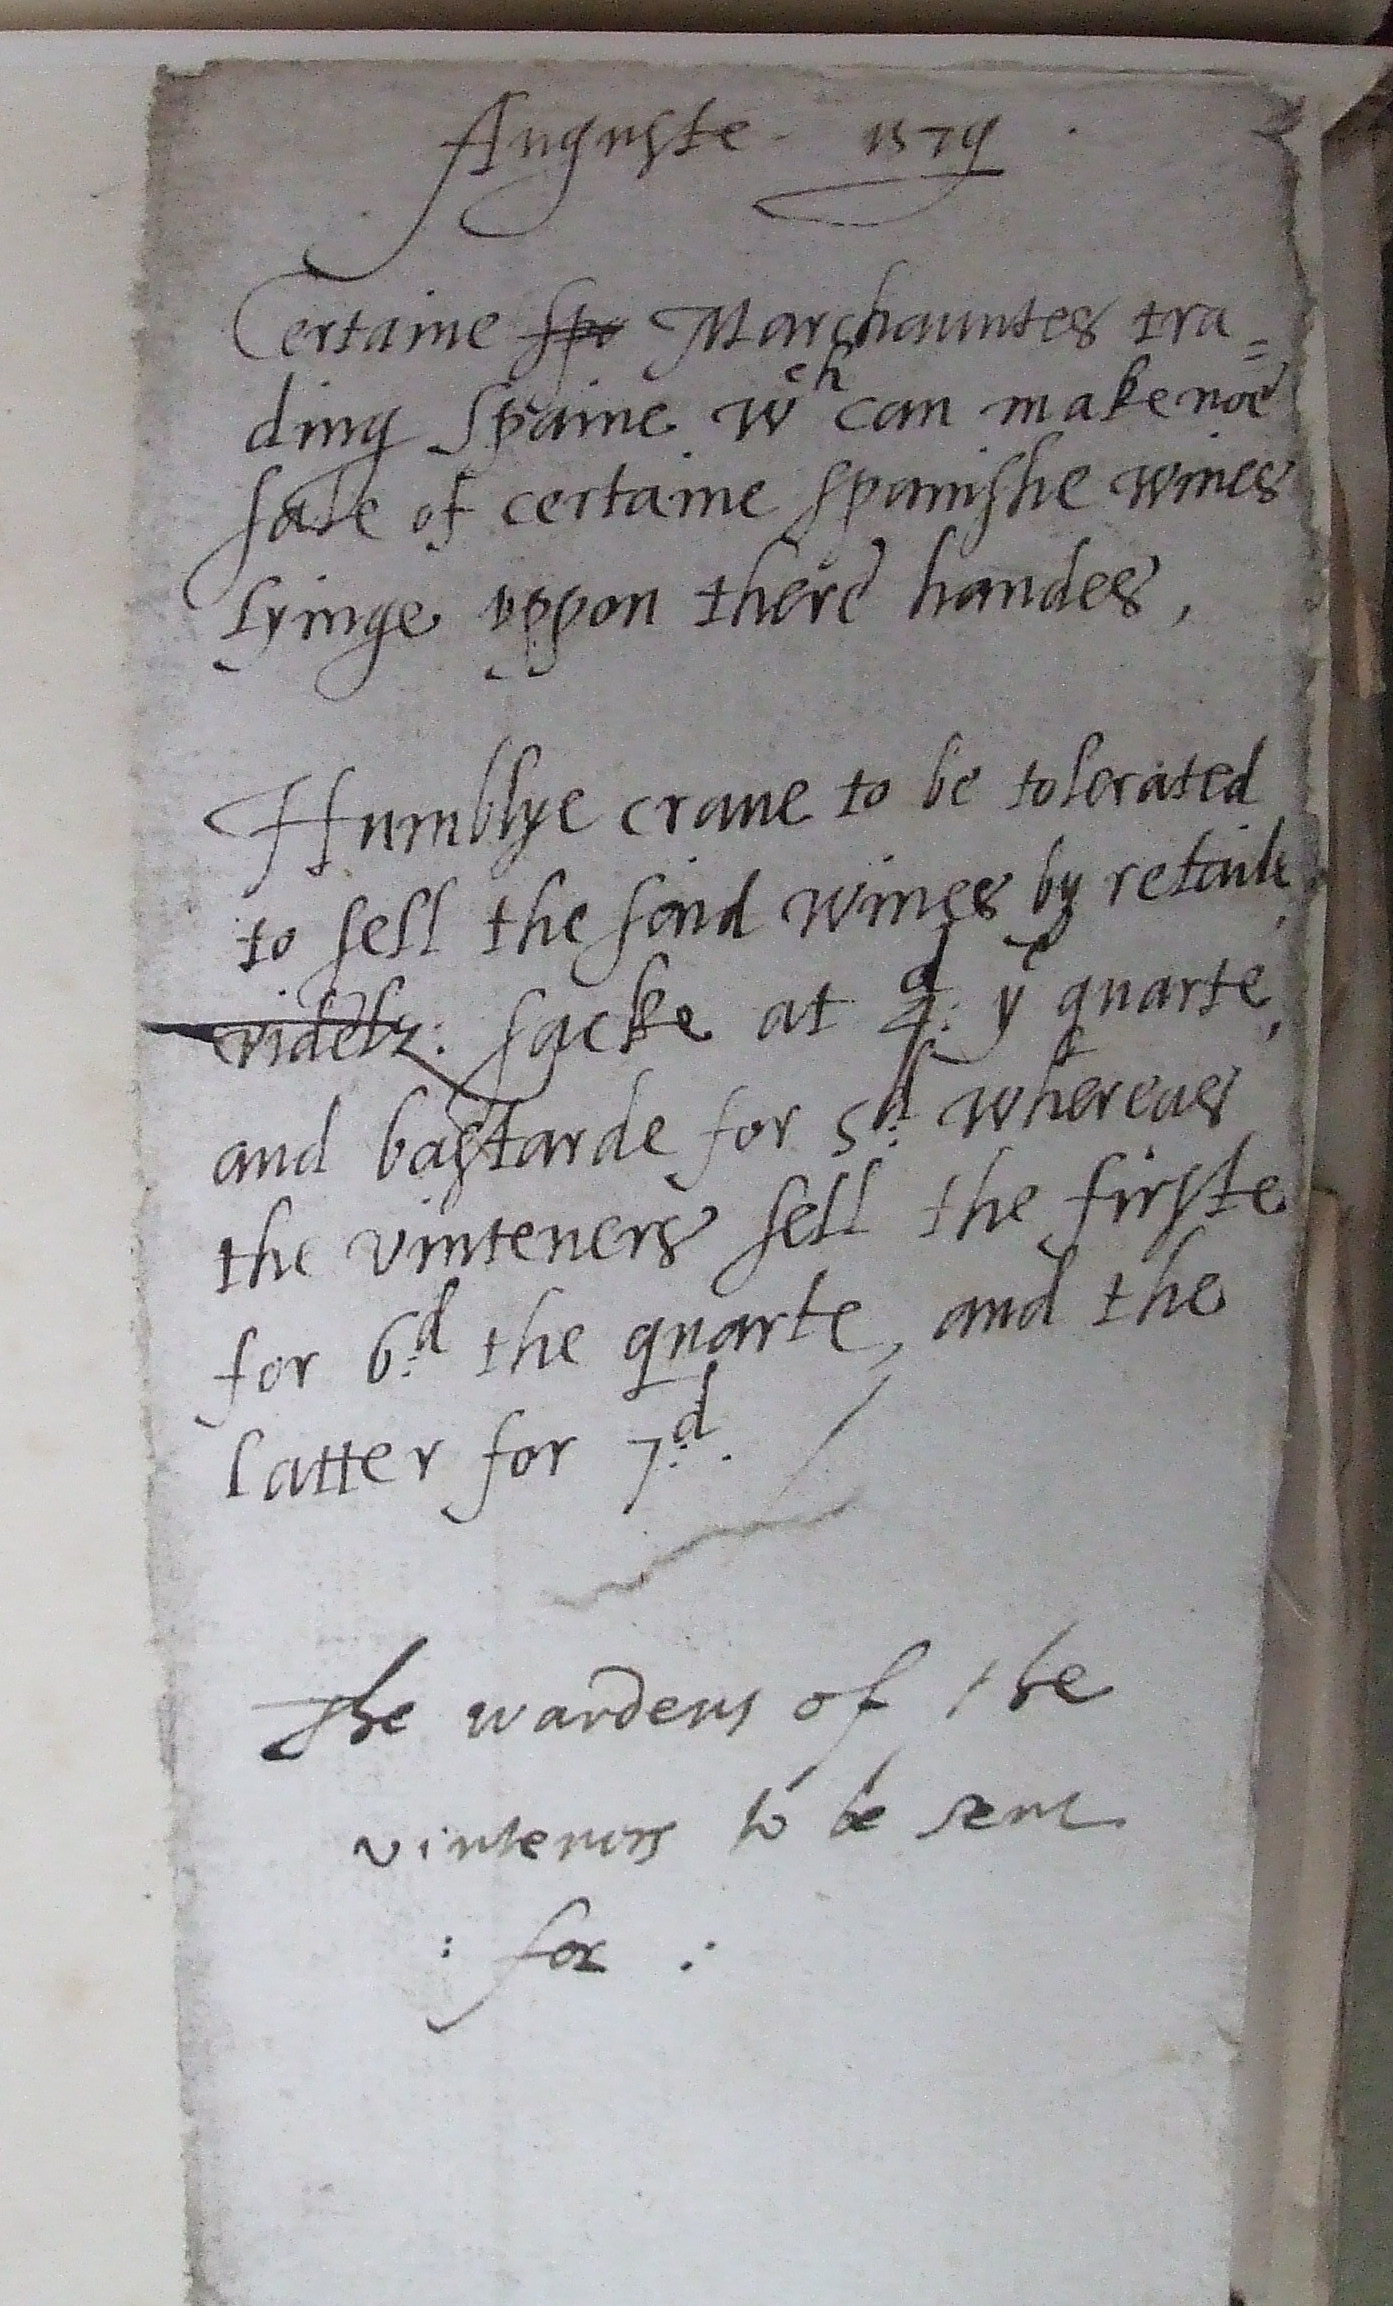 Auguste - 1579 .
Certaine spa Marchauntes tra=
ding Spaine wch can make noe
sale of certaine spanishe wines
lyinge vppon there handes,
Humblye craue to be tolerated
to sell the said wines by retaile,
videlz: sacke at 4d: ye quarte,
and bastarde for 5d: whereas
the vinteners sell the firste
for 6d: the quarte, and the
latter for 7d: .
The wardens of the
vinteners to be sent
: for :